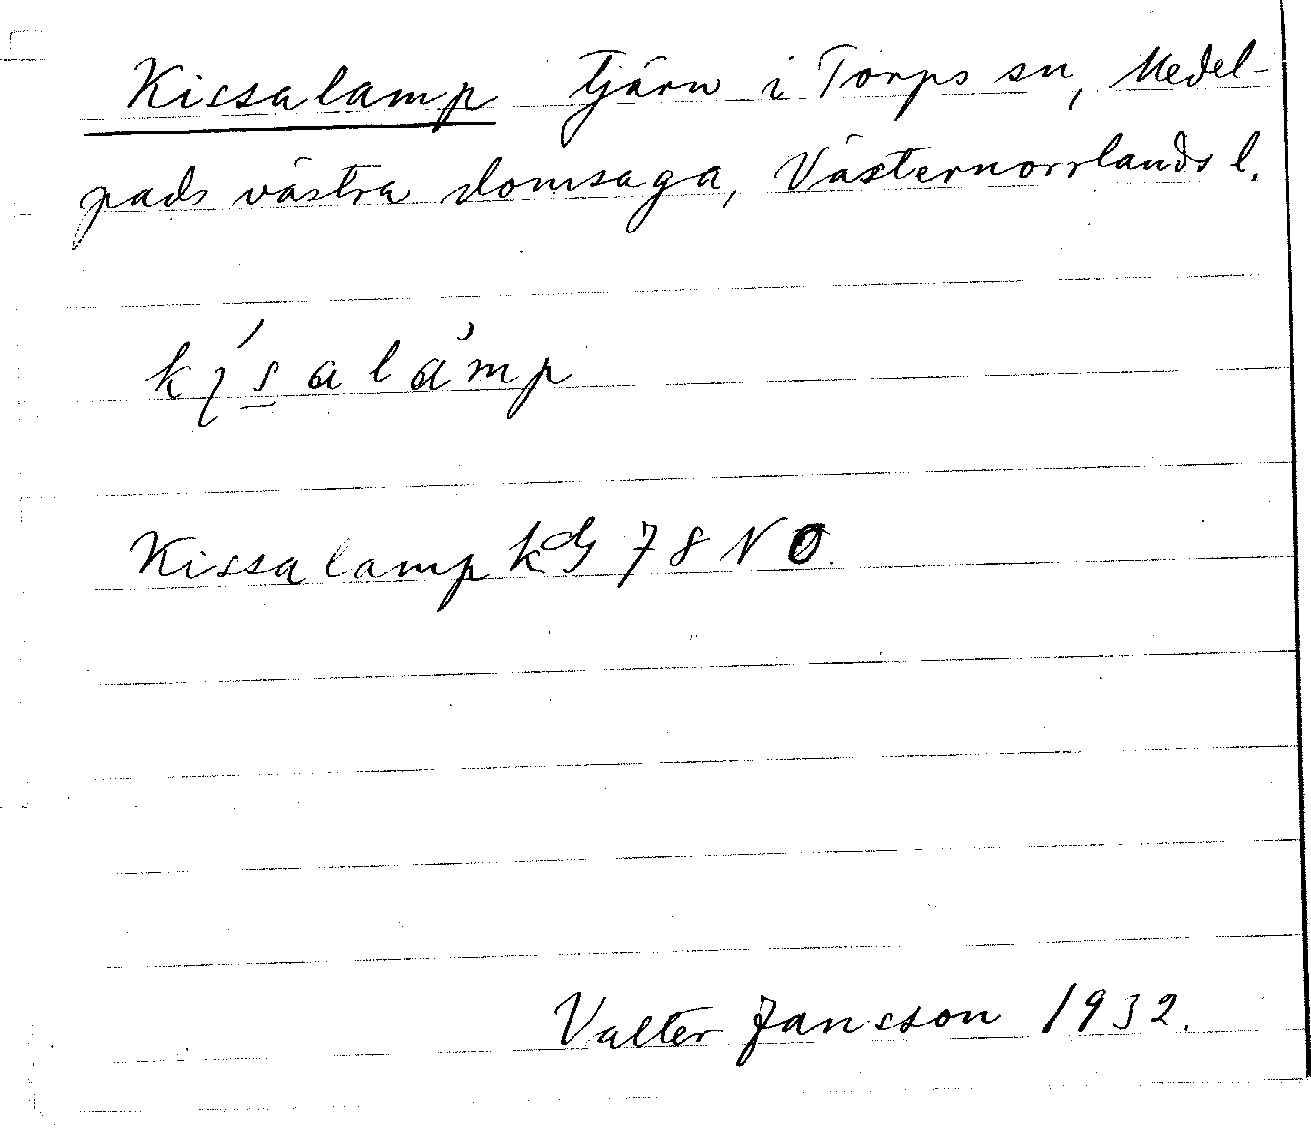 Kissalamp tjärn i Torps sn, Medel-
pads västra domsaga, Västernorrlands l.
Kissalamp kG 78 NO.
Valter Jansson 1932.